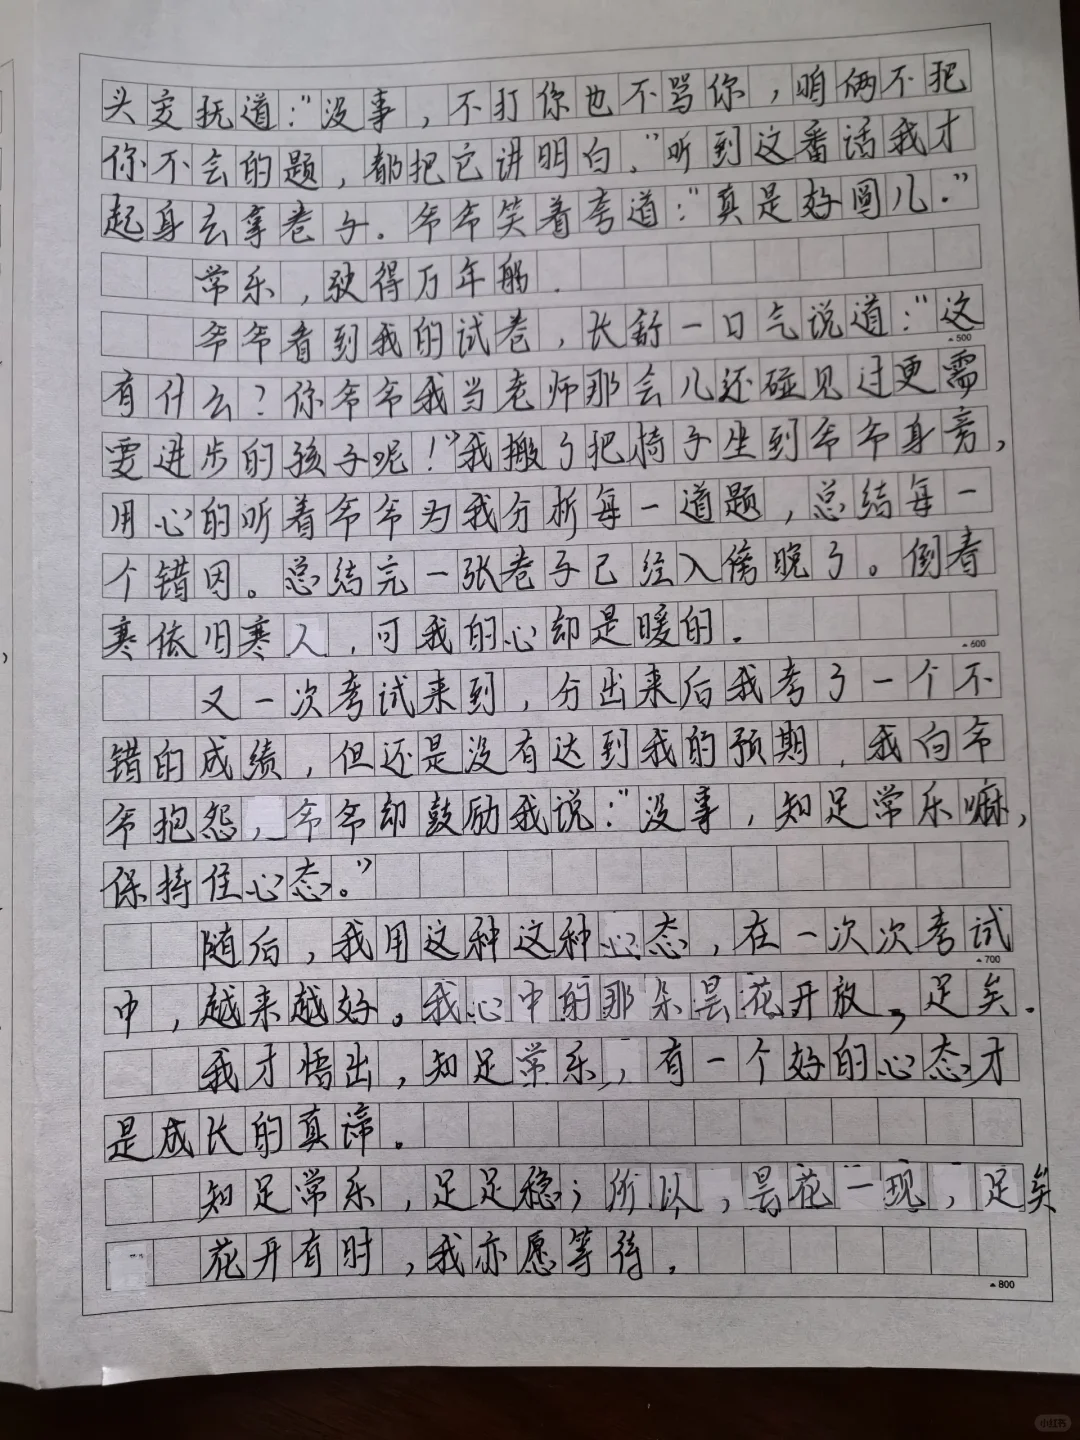 头安抚道：“没事，不打你也不骂你，咱俩不把
你不会的题，都把它讲明白．”听到这番话我才
起身去拿卷子．爷爷笑着夸道：“真是好囡儿．”
常乐，驶得万年船．
爷爷看到我的试卷，长舒一口气说道：“这
▲500
有什么？你爷爷我当老师那会儿还碰见过更需
要进步的孩子呢！”我搬了把椅子坐到爷爷身旁，
用心的听着爷爷为我分析每一道题，总结每一
个错因。总结完一张卷子已经入傍晚了。倒春
寒依旧寒人，可我的心却是暖的．
▲600
又一次考试来到，分出来后我考了一个不
错的成绩，但还是没有达到我的预期，我向爷
爷抱怨，爷爷却鼓励我说：“没事，知足常乐嘛，
保持住心态。”
随后，我用这种这种心态，在一次次考试
▲700
中，越来越好。我心中的那朵昙花开放，足矣．
我才悟出，知足常乐，有一个好的心态才
是成长的真谛。
知足常乐，足足稳；所以，昙花一现，足矣
花开有时，我亦愿等待．
▲800
小红书